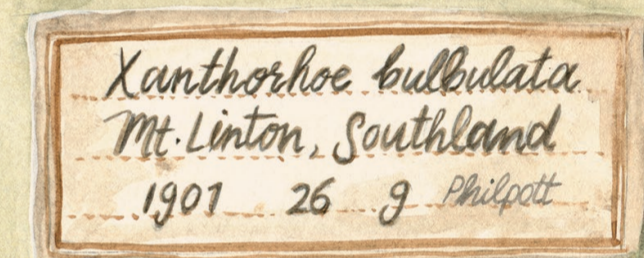 Xanthorhoe bulbulata
Mt. Linton, Southland
1901 26 9 Philpott